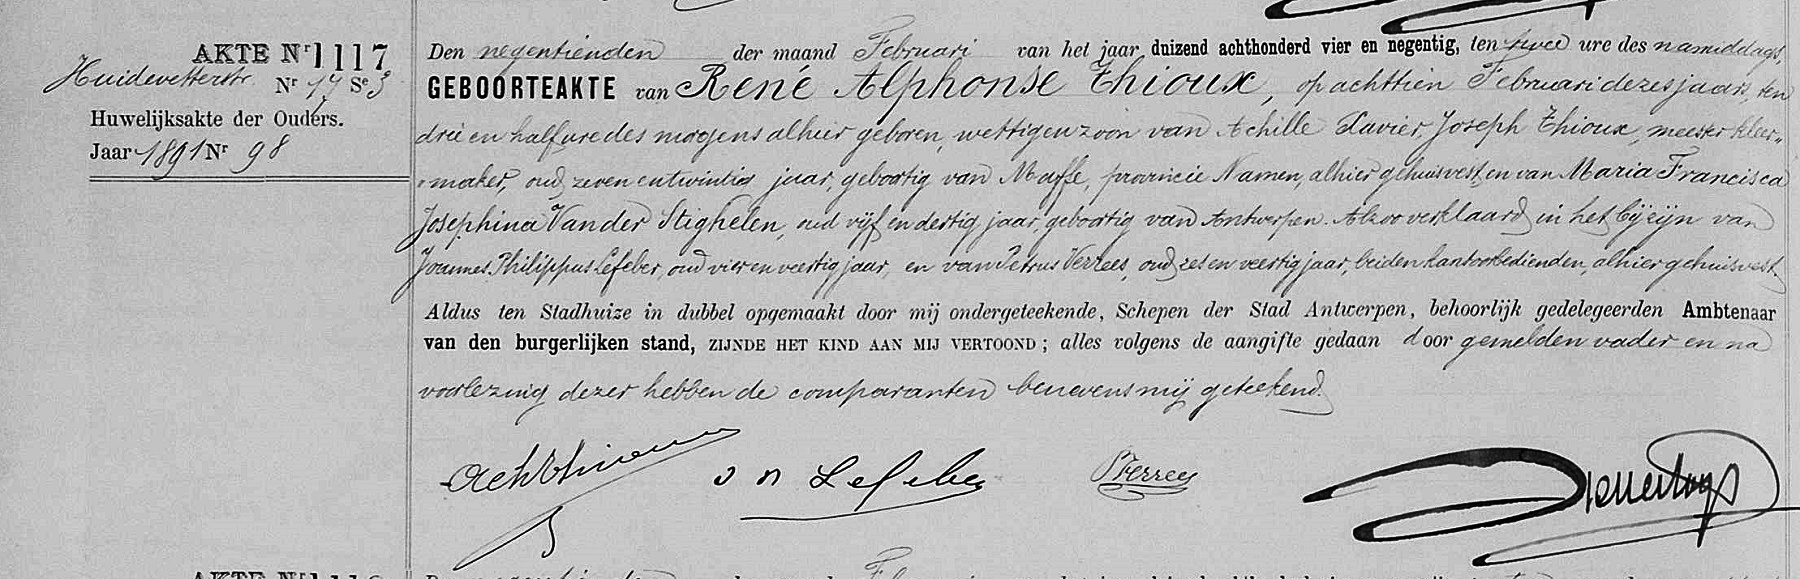 AKTE Nr 1117
Huidevetterstr. Nr 17 Se 3
Huwelijksakte der Ouders.
Jaar 1891 Nr 98
Den negentienden der maand Februari van het jaar duizend achthonderd vier en negentig, ten twee ure des namiddags,
GEBOORTEAKTE van René Alphonse Thioux, op achttien Februari dezes jaars, ten
drie en half ure des morgens alhier geboren, wettigen zoon van Achille Xavier Joseph Thioux, meester kleer-
maker, oud zeven en twintig jaar, geboortig van Maffe, provincie Namen, alhier gehuisvest, en van Maria Francisca
Josephina Vander Stighelen, oud vijf en dertig jaar, geboortig van Antwerpen. Alzoo verklaard in het bijzijn van
Joannes Philippus Lefeber, oud vier en veertig jaar, en van Petrus Verrees, oud zes en veertig jaar, beiden kantoorbedienden, alhier gehuisvest.
Aldus ten Stadhuize in dubbel opgemaakt door mij ondergeteekende, Schepen der Stad Antwerpen, behoorlijk gedelegeerden Ambtenaar
van den burgerlijken stand, ZIJNDE HET KIND AAN MIJ VERTOOND; alles volgens de aangifte gedaan door gemelden vader en na
voorlezing dezer hebben de comparanten benevens mij geteekend.
Ach Thioux Lefeber PVerrees
AKTE Nr